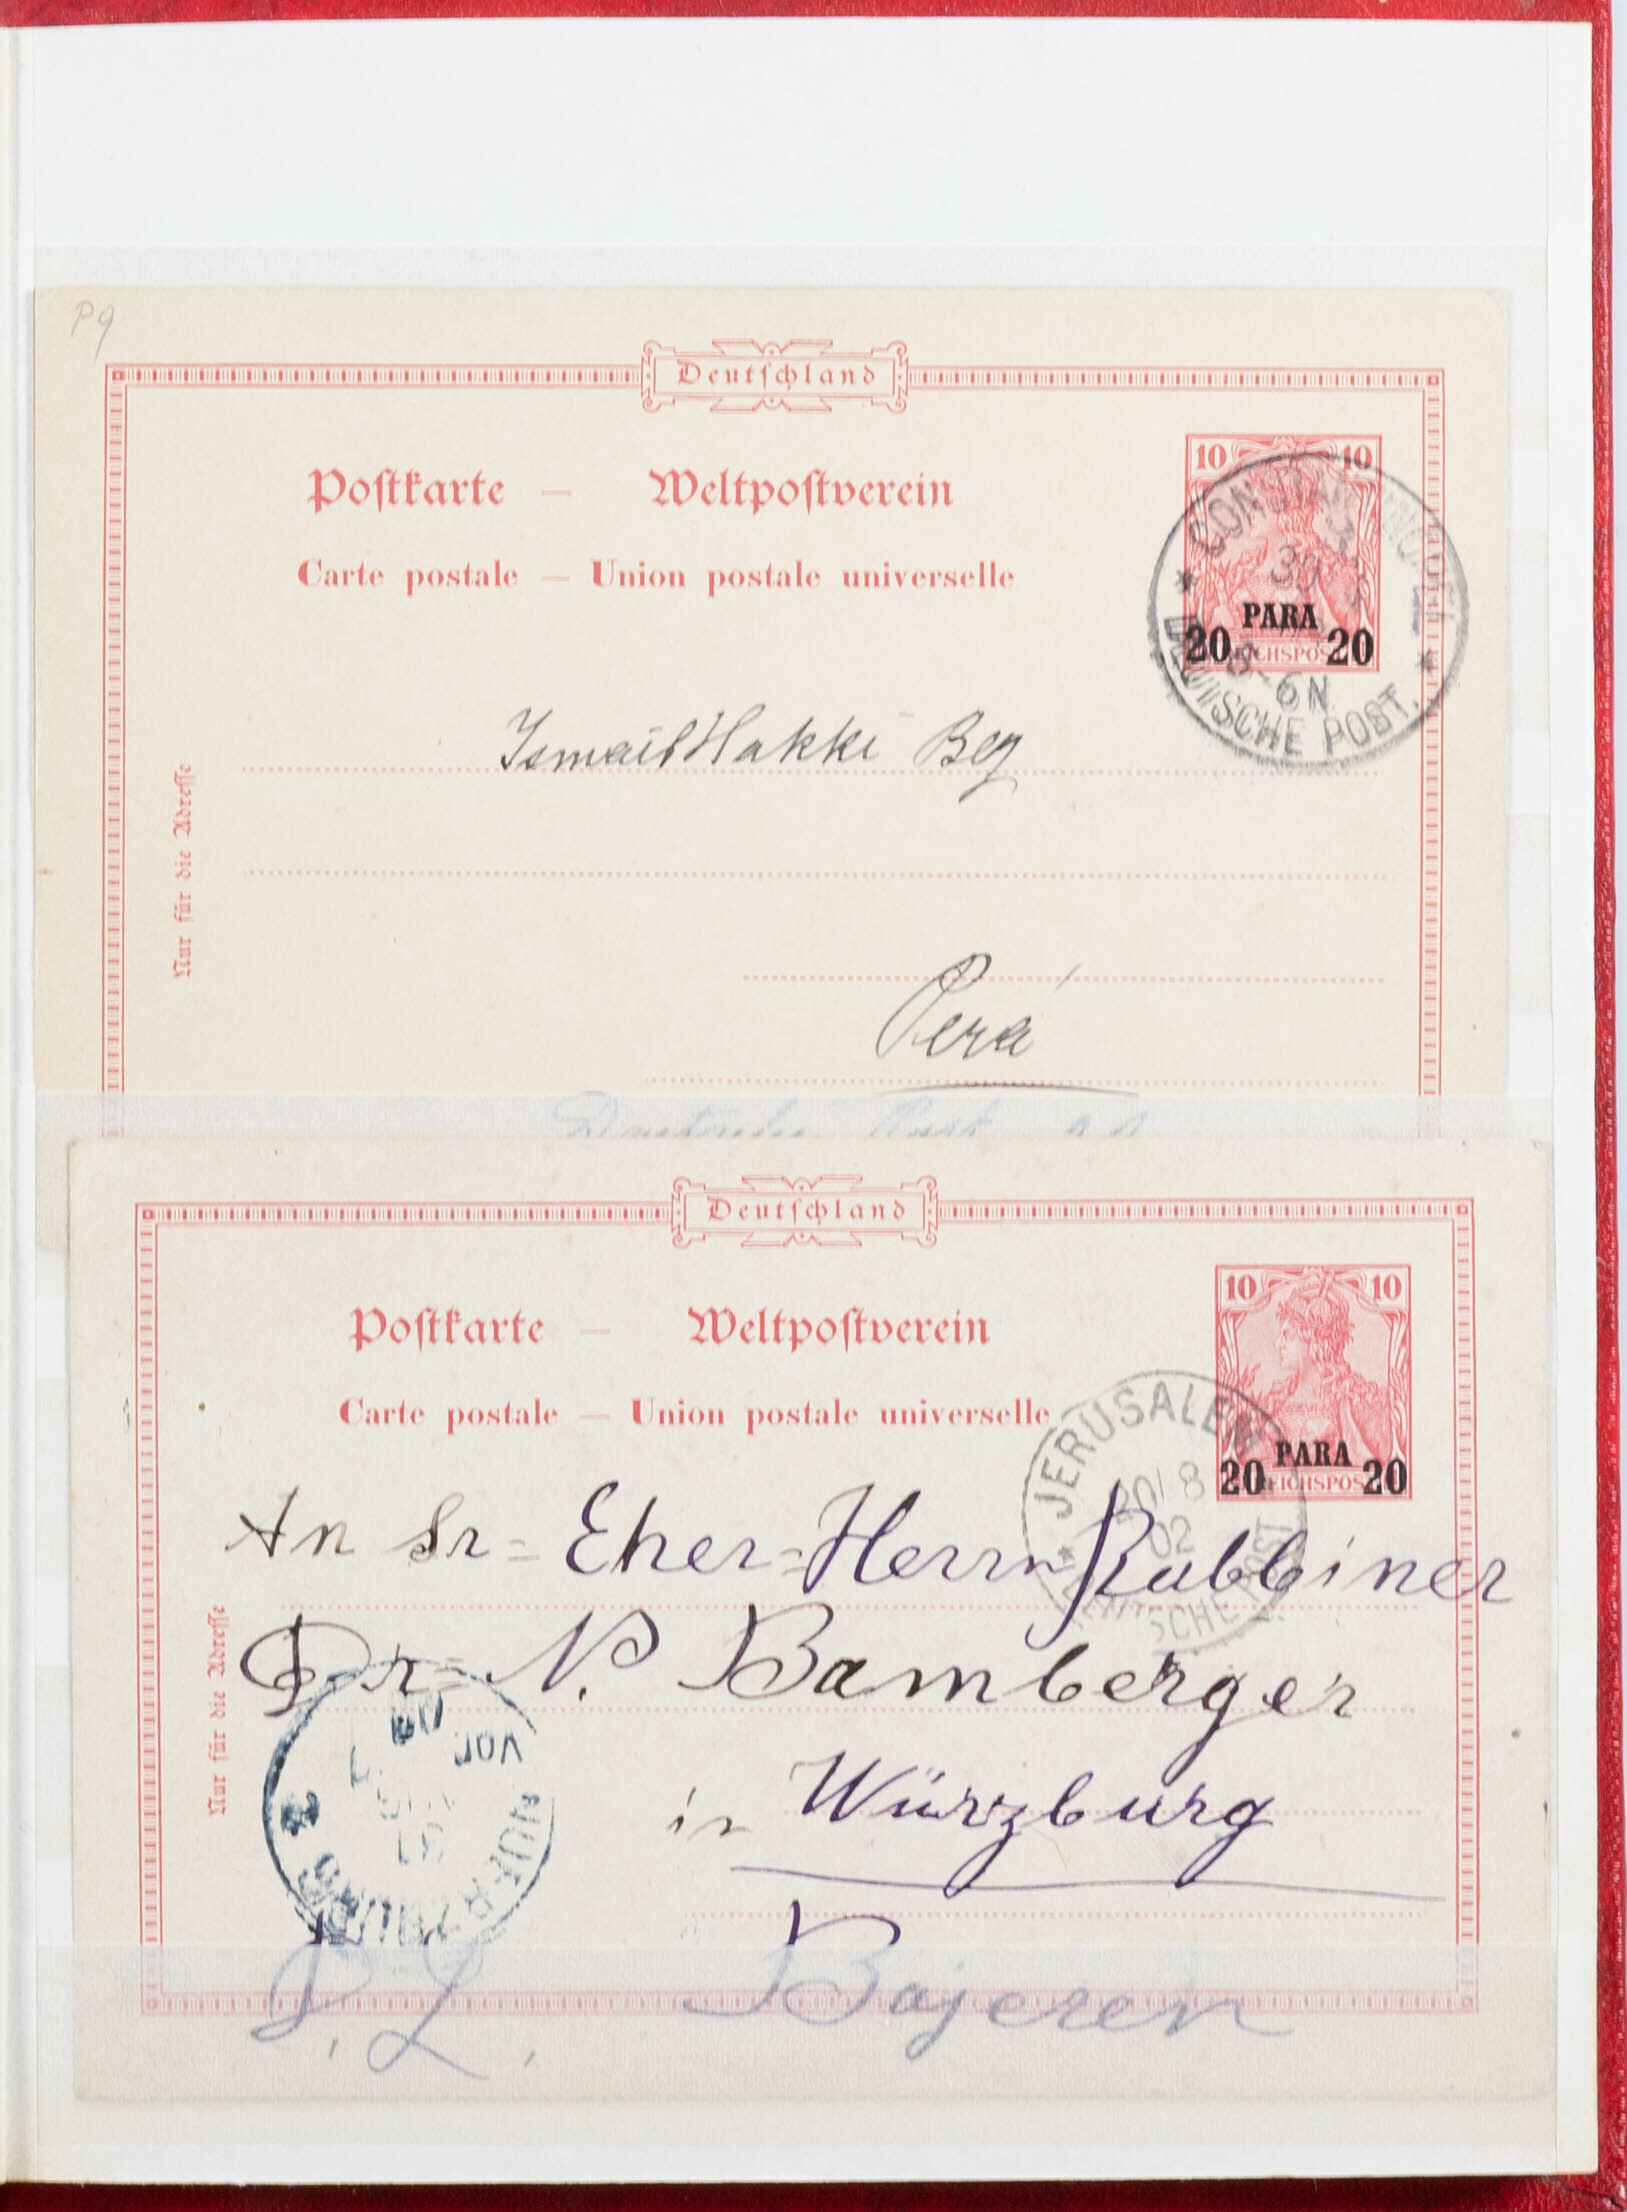 P9
Deutschland
Postkarte — Weltpostverein
Carte postale — Union postale universelle
10 10
PARA
20 20
REICHSPOST
CONSTANTINOPEL
30
5-6N
DEUTSCHE POST.
Ismail Hakki Bey
Nur für die Adresse
Pera
Deutschland
Postkarte — Weltpostverein
Carte postale — Union postale universelle
10 10
PARA
20 20
REICHSPOST
JERUSALEM
30/8
02
DEUTSCHE POST
An Sr= Eher=Herrn Rabbiner
Dr= N. Bamberger
in Würzburg
Bajeren
Nur für die Adresse
WUERZBURG 2
VOR